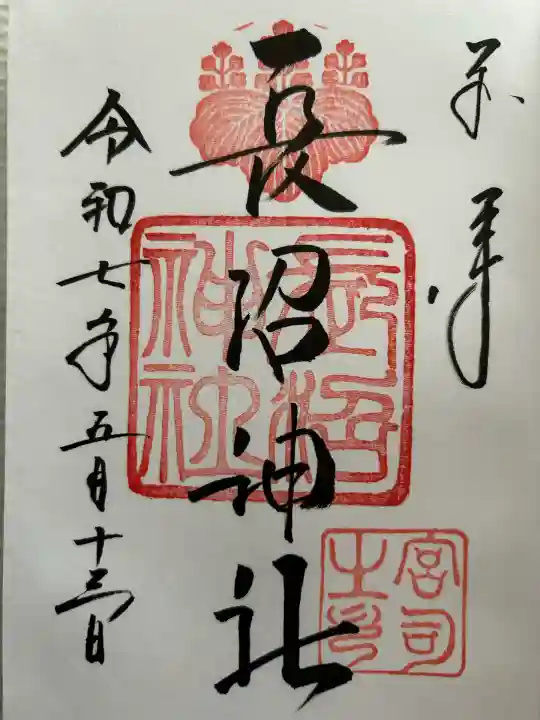 奉拝
長沼神社
長沼神社
宮司之印
令和七年五月十三日